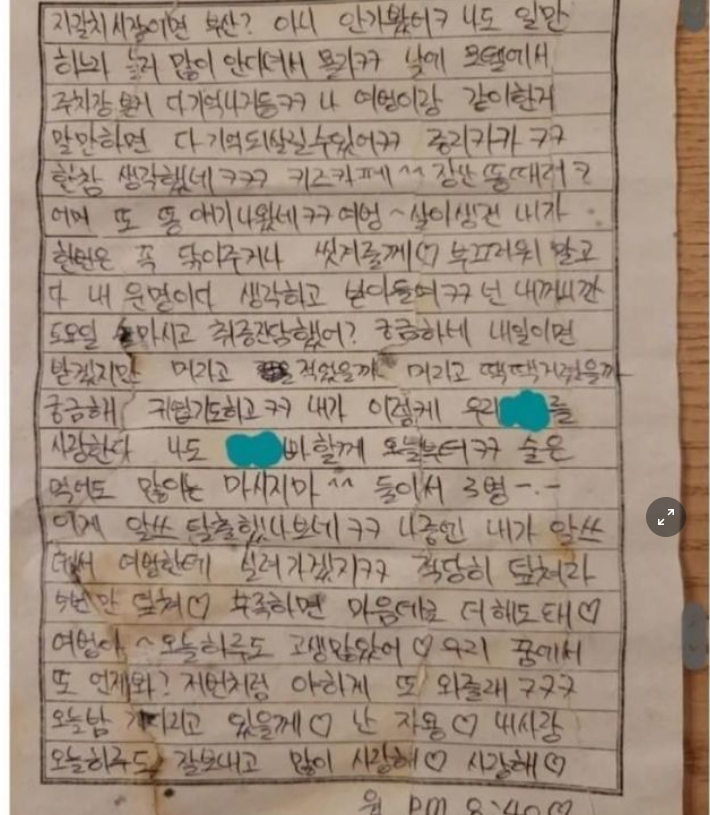 자갈치시장이면 부산? 아니 안가봤어ㅋ 나도 일만
하느라 놀러 많이 안다녀서 몰라ㅋㅋ 낮에 모텔에서
주차장 본거 다기억나거든ㅋㅋ 나 여벙이랑 같이한거
말만하면 다 기억되살릴수있어ㅋㅋ 종리카카 ㅋㅋ
한참 생각했네ㅋㅋㅋ 키즈카페^^ 장난 똥때려?
어메 또 똥 얘기나왔네ㅋㅋ 여벙~ 살이생건 내가
한번은 꼭 닦아주거나 씻겨줄께♡ 부끄러워 말고
다 내 운명이다 생각하고 받아들여ㅋㅋ 넌 내꺼니깐
토요일 술마시고 취중진담했어? 궁금하네 내일이면
받겠지만 머라고 적었을까 머라고 떽떽거렸을까
궁금해 귀엽기도하고ㅋㅋ 내가 이렇케 우리 를
사랑한다 나도 바할께 오늘부터ㅋㅋ 술은
먹어도 많이는 마시지마^^ 둘이서 3병-.-
이게 알쓰 탈출했나보네ㅋㅋ 나중엔 내가 알쓰
되서 여벙한테 실려가겠지ㅋㅋ 적당히 덮쳐라
5번만 덮쳐♡ 부족하면 마음데로 더해도 돼♡
여벙아~오늘하루도 고생많았어♡ 우리 꿈에서
또 언제와? 저번처럼 야하게 또 와줄래 ㅋㅋㅋ
오늘밤 기다리고 있을께♡ 난 자용♡ 내사랑
오늘하루도 잘보내고 많이 사랑해♡ 사랑해♡
월 PM 8:40♡